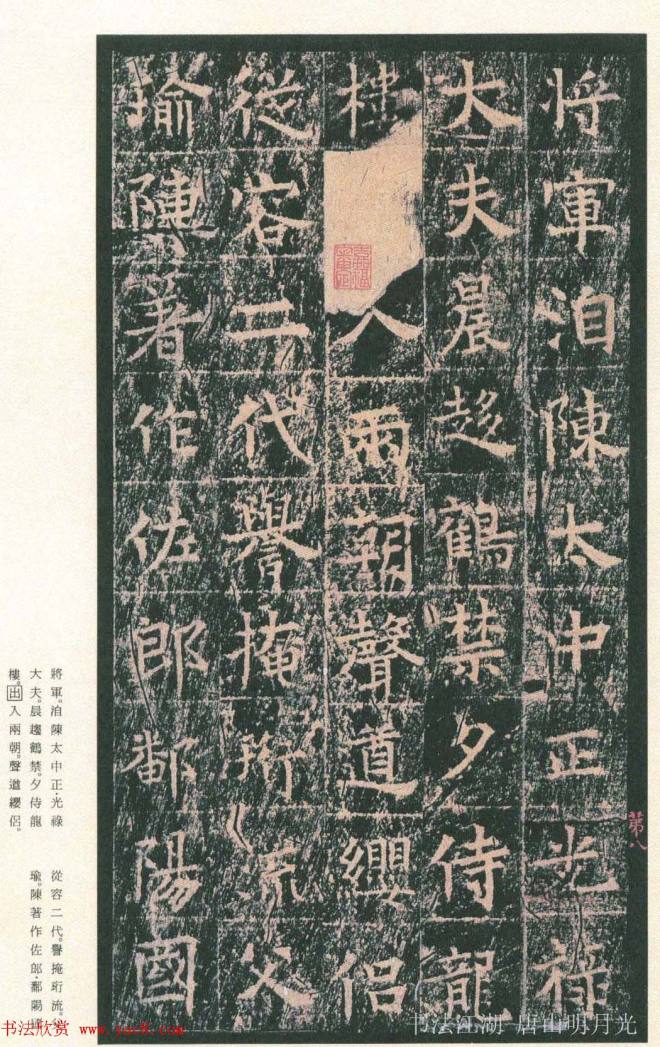 将軍洎陳太中正光祿
大夫晨趍鶴禁夕侍龍
樓入兩朝聲遒纓侶
從容二代譽掩珩流父
瑜陳著作佐郎鄱陽國
第八
將軍。洎陳太中正·光祿
大夫。晨趨鶴禁。夕侍龍
樓。出入兩朝。聲遒纓侶。
從容二代。譽掩珩流。父
瑜。陳著作佐郎·鄱陽國
书法欣赏 www.yac8.com
书法江湖 唐山明月光